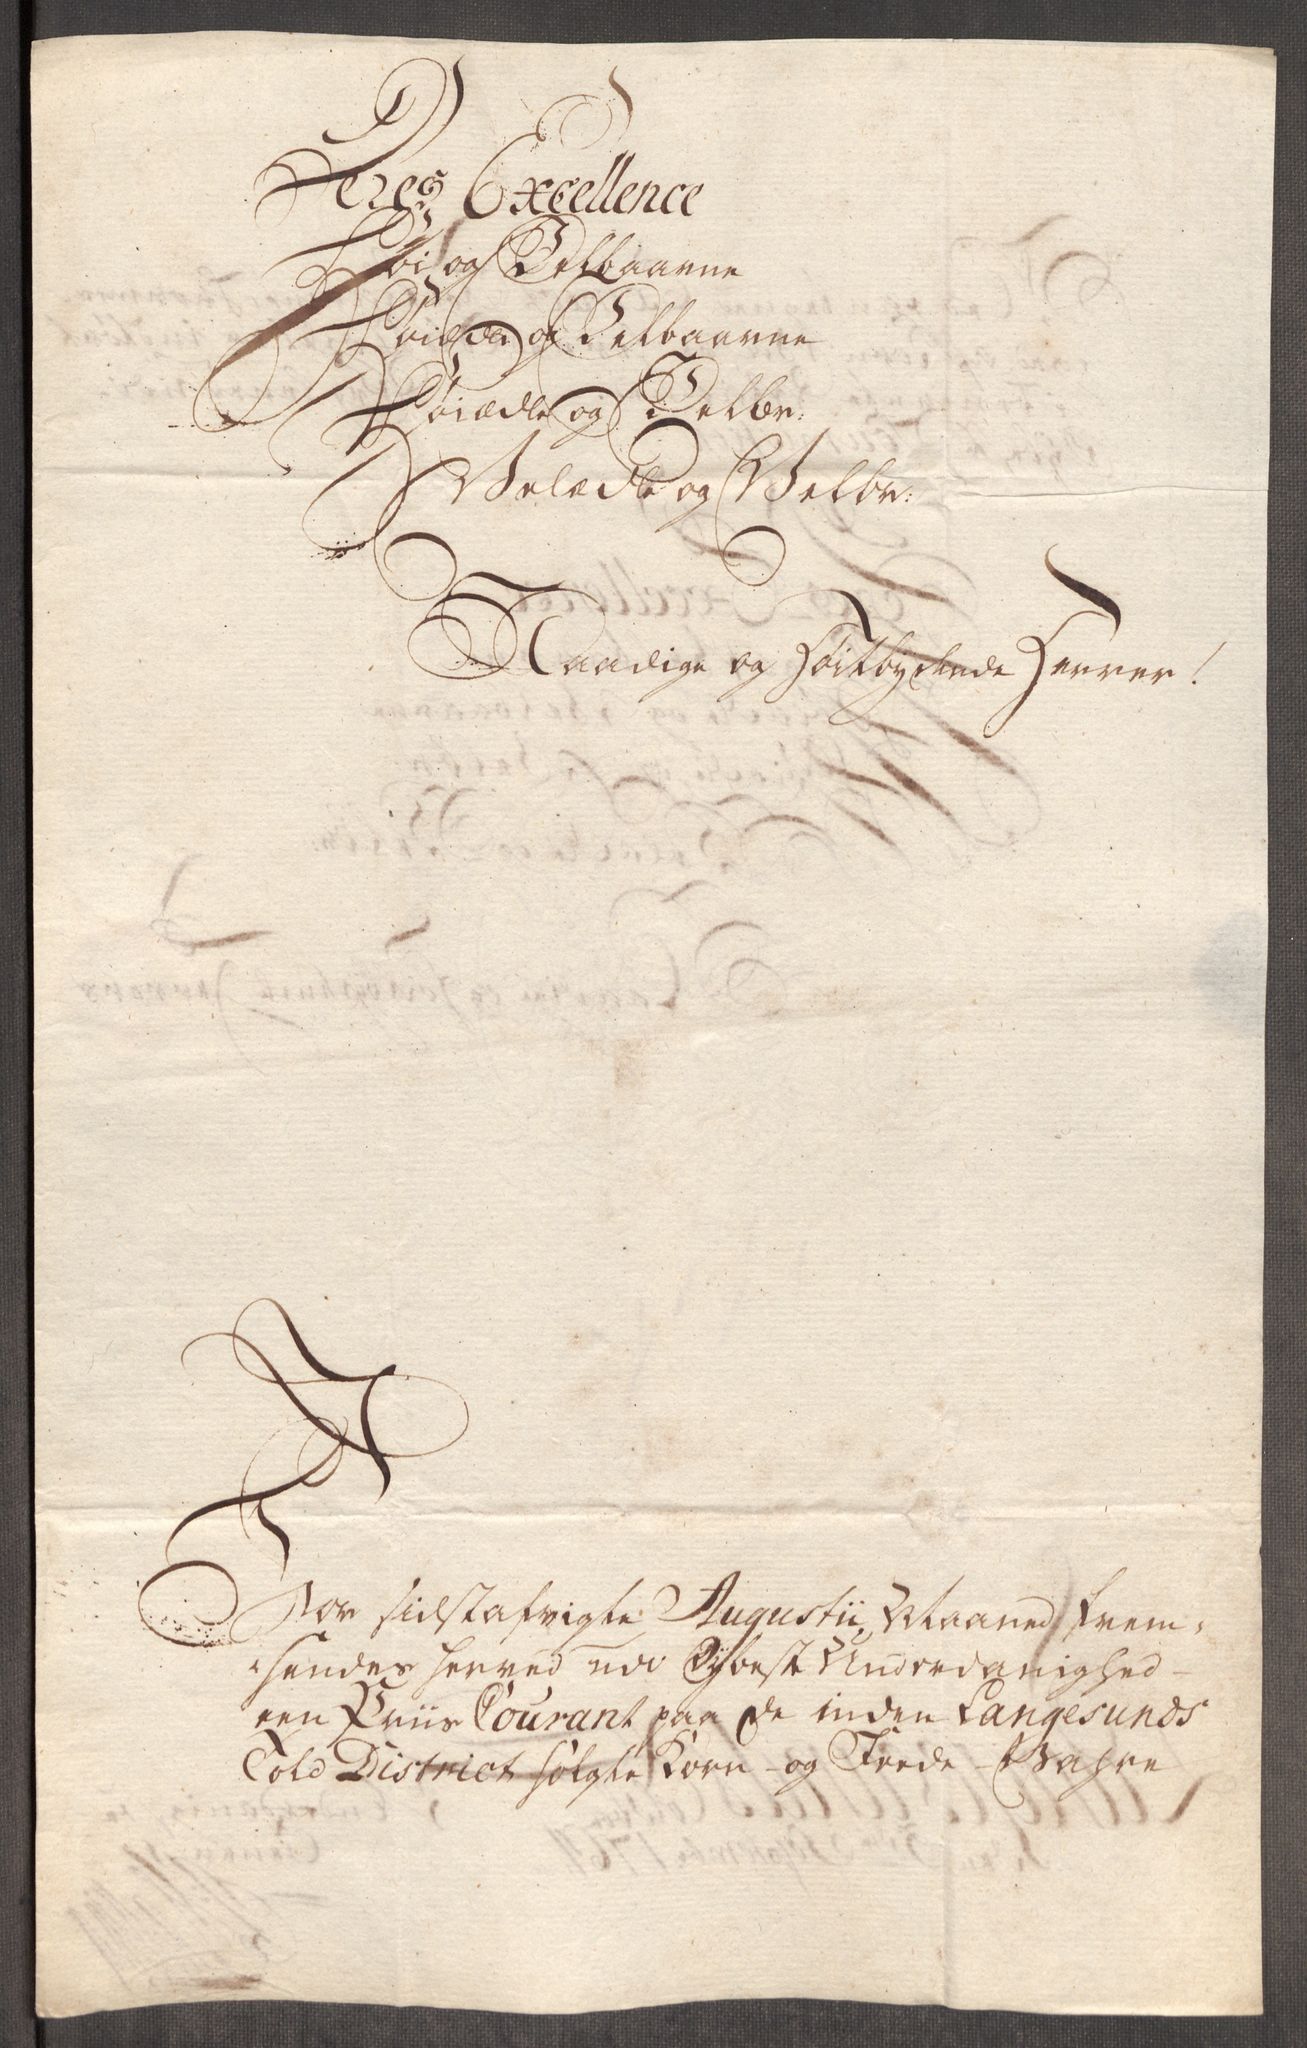 Deres Excellence
Høi og Velbaarne
Høiædle og Velbaarne
Høiædle og Velbr:
Velædle og Velbr:
Naadige og Høitbydende Herrer!
For sidstafvigte Augustii Maaned frem-
sendes herved udi dybeste Underdanighed
een Priis Courant paa de inden Langesunds
Told District solgte Korn- og Fede-Vahre